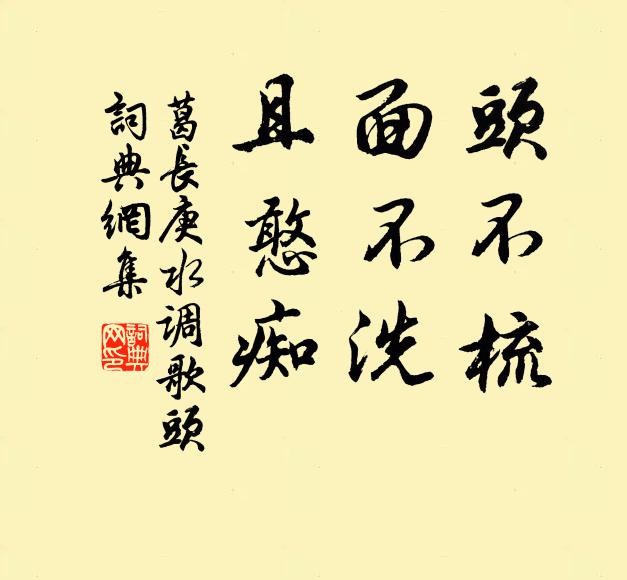 頭不梳
面不洗
且憨痴
葛長庚水调歌頭
詞典網集
詞典網印